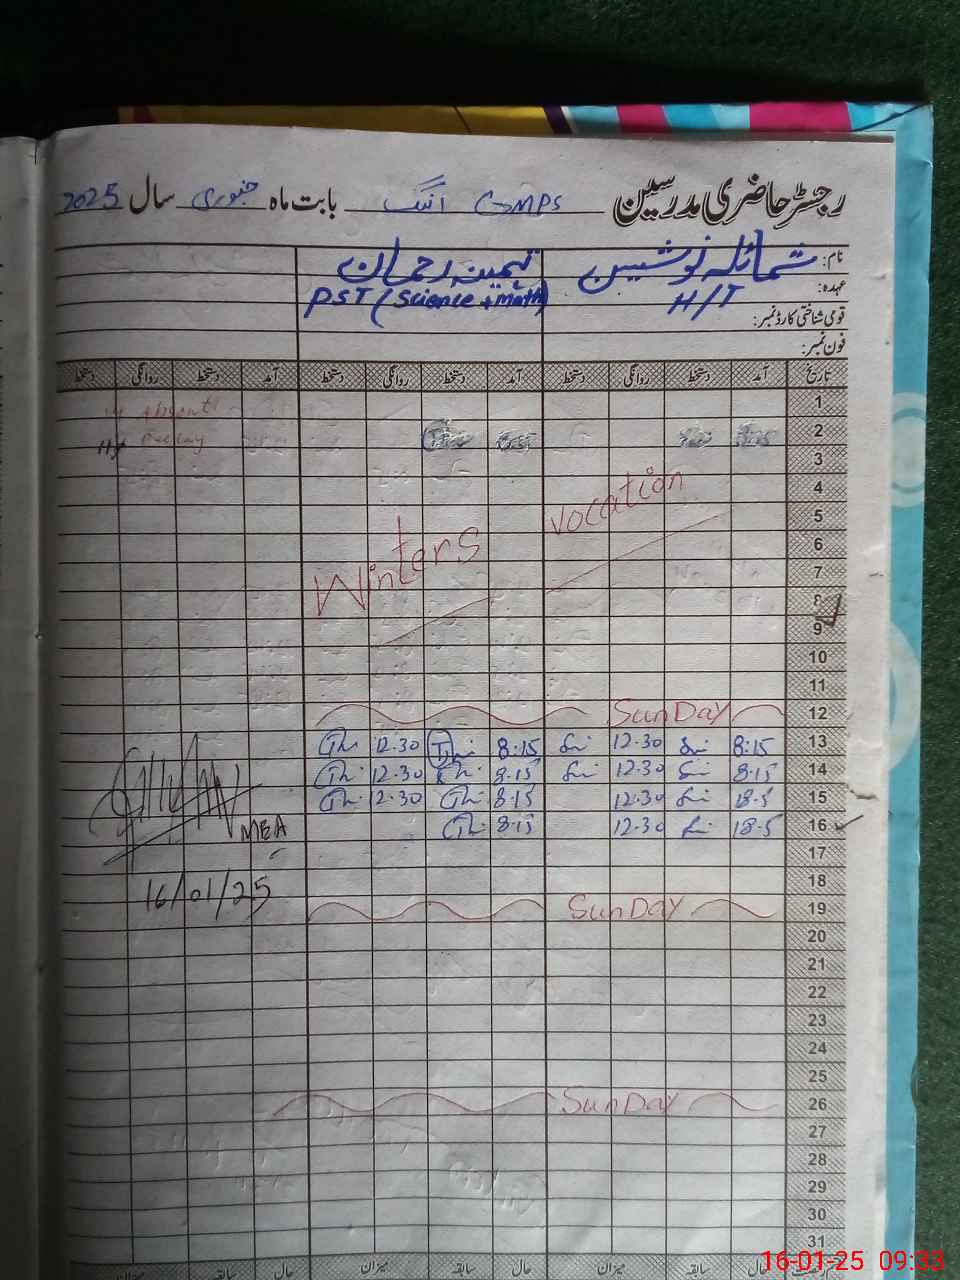 رجسٹر حاضری مدرسین GMPS اننگ بابت ماہ جنوری سال 2025
نام: شمائلہ نوشین تہمینہ رحمان
عہدہ: H/T PST (Science + Math)
قومی شناختی کارڈ نمبر:
فون نمبر:
تاریخ آمد دستخط روانگی دستخط آمد دستخط روانگی دستخط آمد دستخط روانگی دستخط
1 Absent
2 8:15
3
4
5
6
7
Winters vocation
8
9
10
11
12 SunDay
13 8:15 12.30 8:15 12.30
14 8:15 12.30 8.15 12.30
15 18.5 12.30 8:15 12.30
16 18.5 12.30 8:15
MEA
17
18
16/01/25
19 SunDay
20
21
22
23
24
25
26 SunDay
27
28
29
30
31
حال سابقہ میزان حال سابقہ میزان حال
16-01-25 09:33